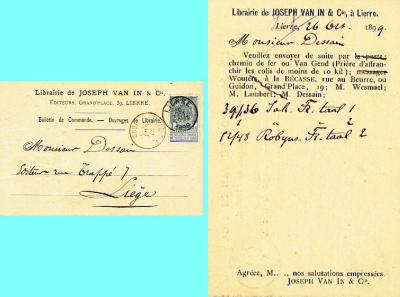 Librairie de JOSEPH VAN IN & Cie.
ÉDITEURS, GRAND'PLACE, 39, LIERRE.
Bulletin de Commande. — Ouvrages de Librairie.
LIERRE
Monsieur Dessain
Editeur rue Trappé 7
Liège
Librairie de JOSEPH VAN IN & Cie, à Lierre.
Lierre, 26 Oct. 1899
Monsieur Dessain
Veuillez envoyer de suite par la poste,
chemin de fer ou Van Gend (Prière d'affran-
chir les colis de moins de 10 kil; messager
Wouters, à la BÉCASSE, rue au Beurre, ou
Guidon, Grand'Place, 19; M. Wesmael;
M. Lambert; M. Dessain;
39/36 Joh. Fr. taal 1
" " 2
12/48 Robyns. Fr. taal 2
Agréez, M..., nos salutations empressées.
JOSEPH VAN IN & Cie.